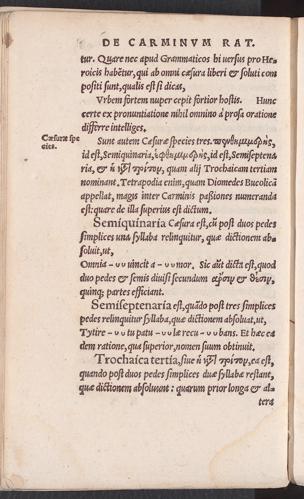 DE CARMINVM RAT.
tur. Quare nec apud Grammaticos hi versus pro He-
roicis habẽtur, qui ab omni cæsura liberi & soluti com
positi sunt, qualis est si dicas,
Vrbem fortem nuper cepit fortior hostis. Hunc
certe ex pronuntiatione nihil omnino à prosa oratione
differre intelliges.
Cæsuræ spe
cies.
Sunt autem Cæsuræ species tres. πενθημιμερὴς,
id est, Semiquinaria, ἑφθημιμερὴς, id est, Semiseptena
ria, & ἡ τρίτον, quam alij Trochaicam tertiam
nominant. Tetrapodia enim, quam Diomedes Bucolicã
appellat, magis inter Carminis passiones nuncranda
est: quare de illa superius est dictum.
Semiquinaria Cæsura est, cũ post duos pedes
simplices vna syllaba relinquitur, quæ dictionem ab-
soluit, vt,
Omnia – ᴗᴗ vincit a – ᴗᴗ mor. Sic aũt dicta est, quod
duo pedes & semis diuisi secundum ἄρσιν & θέσιν,
quinq; partes efficiant.
Semiseptenaria est, quãdo post tres simplices
pedes relinquitur syllaba, quæ dictionem absoluat, vt,
Tytire – ᴗᴗ tu patu – ᴗᴗ læ recu – ᴗᴗ bans. Et hæc ea
dem ratione, qua superior, nomen suum obtinuit.
Trochaica tertia, siue ἡ τρίτον, ea est,
quando post duos pedes simplices duæ syllabæ restant,
quæ dictionem absoluant: quarum prior longa & al-
tera